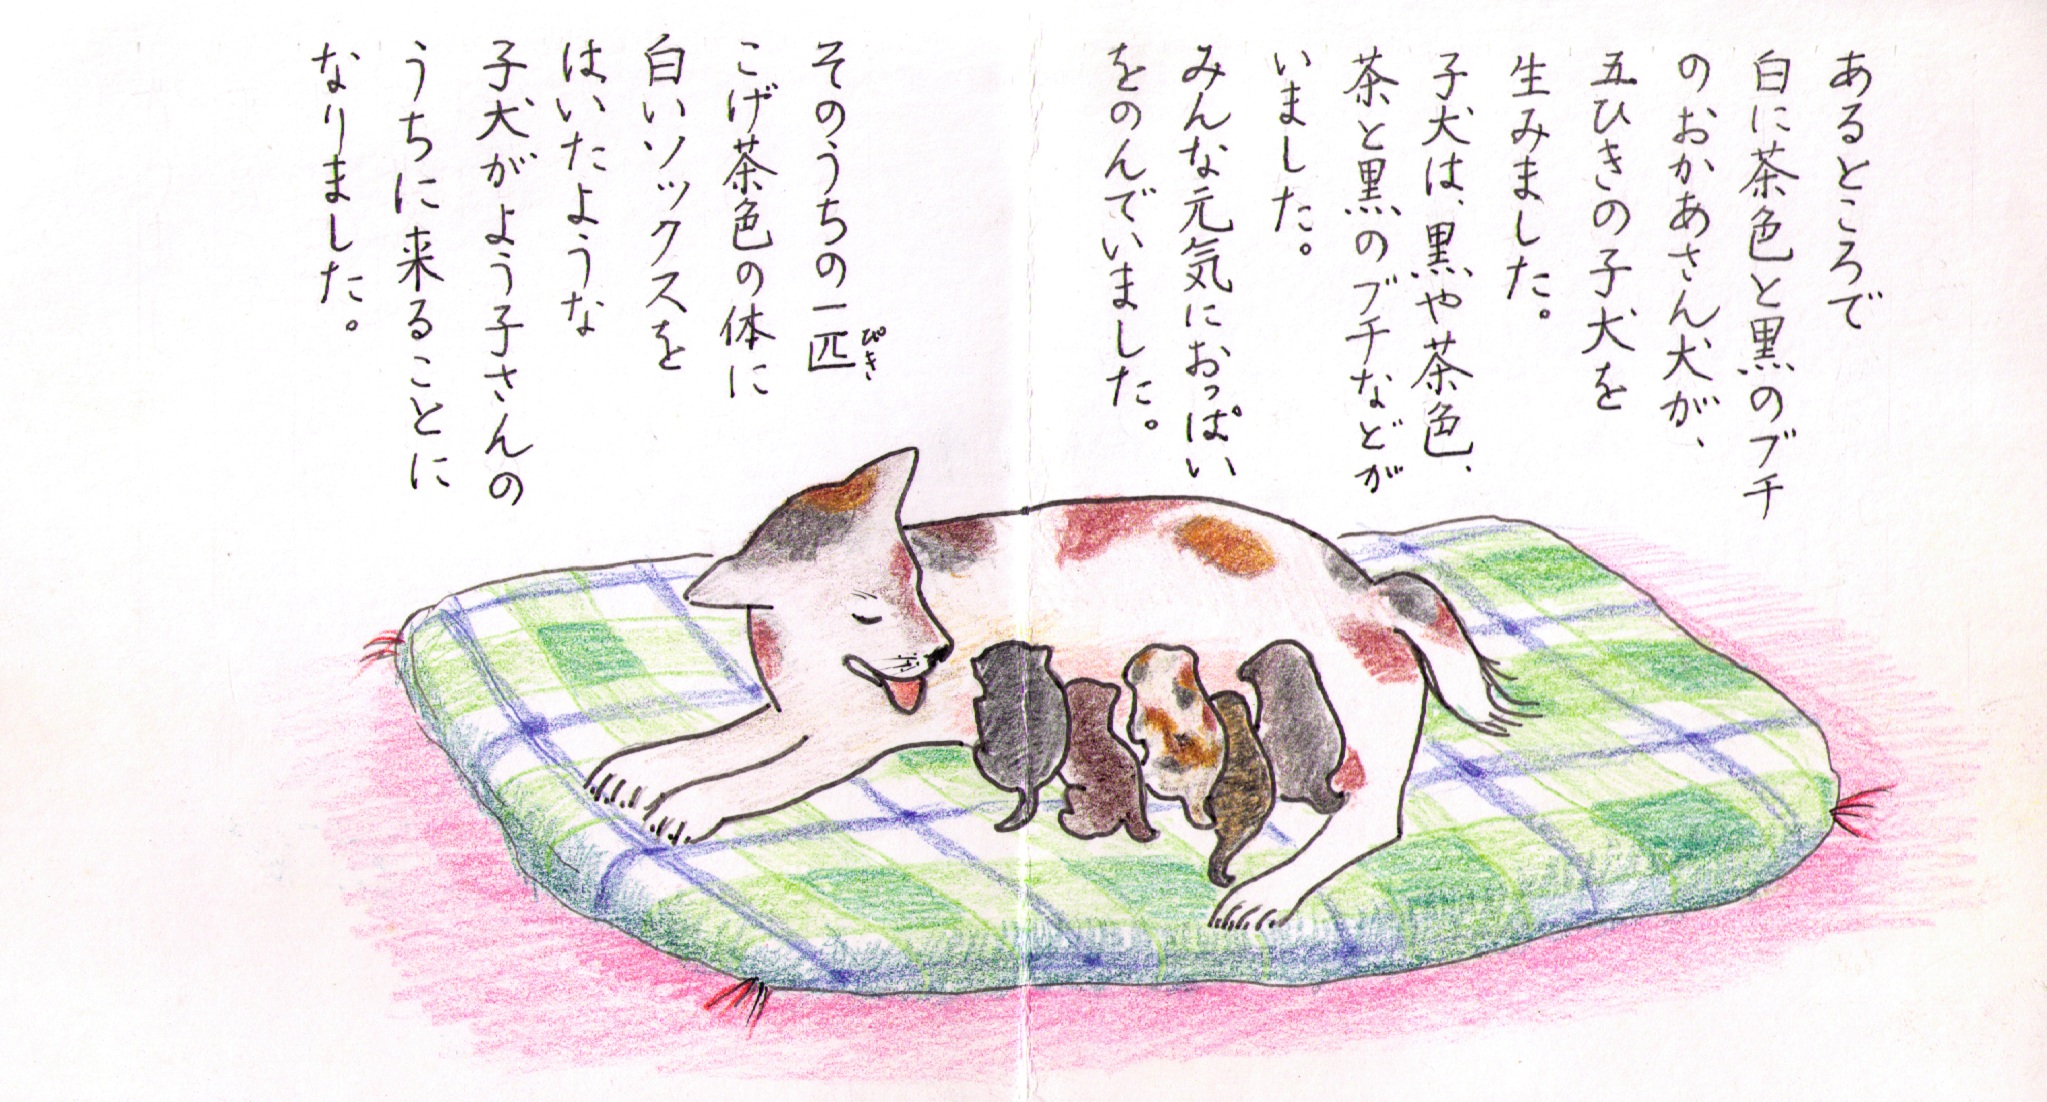 あるところで
白に茶色と黒のブチ
のおかあさん犬が、
五ひきの子犬を
生みました。
子犬は、黒や茶色、
茶と黒のブチなどが
いました。
みんな元気におっぱい
をのんでいました。
そのうちの一匹
ぴき
こげ茶色の体に
白いソックスを
はいたような
子犬がよう子さんの
うちに来ることに
なりました。